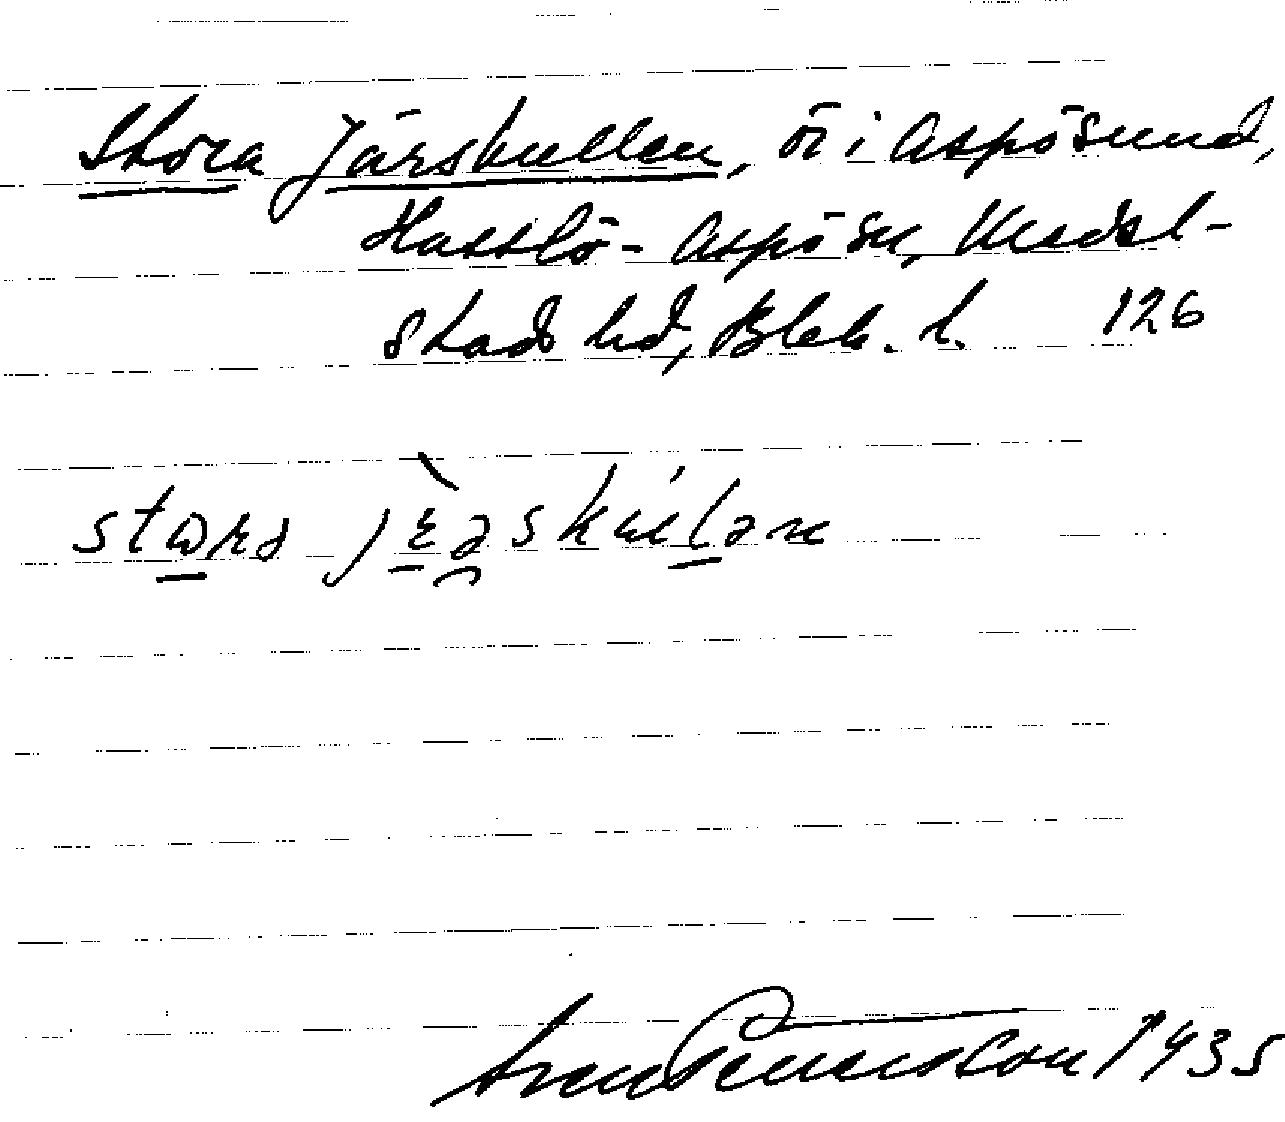 Stora Järskullen, ö i Aspösund,
Hasslö-Aspö sn, Medel-
stads hd, Blek. l. 126
stωra jɛ̀əskúlən
Sven Benson 1935